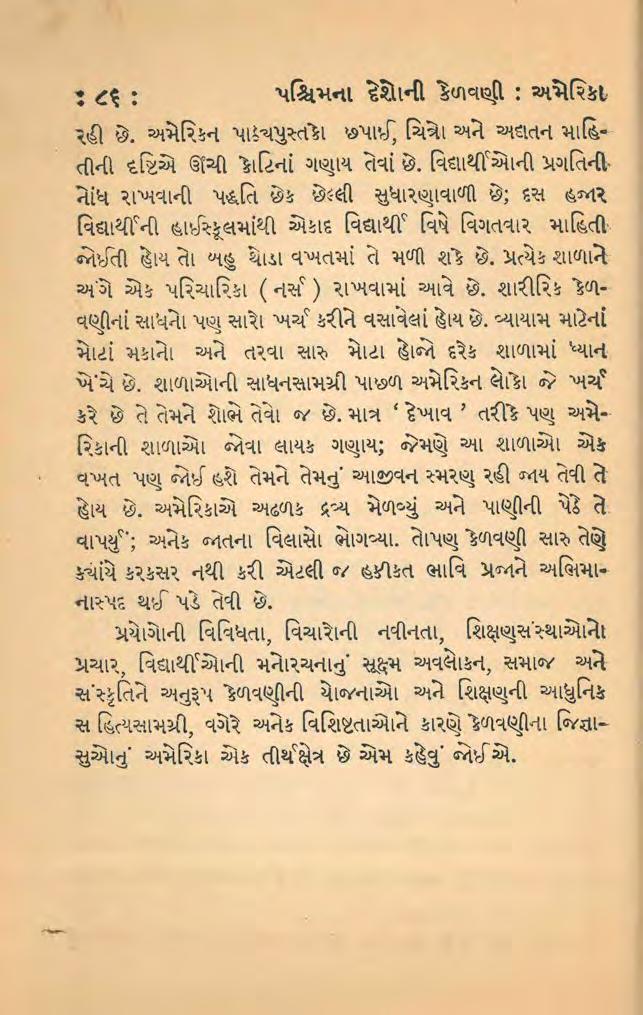 : ૮૬ : પશ્ચિમના દેશોની કેળવણી : અમેરિકા
રહી છે. અમેરિકન પાઠ્યપુસ્તકો છપાઈ, ચિત્રો અને અદ્યતન માહિ-
તીની દૃષ્ટિએ ઊંચી કોટિનાં ગણાય તેવાં છે. વિદ્યાર્થીઓની પ્રગતિની
નોંધ રાખવાની પદ્ધતિ છેક છેલ્લી સુધારણાવાળી છે; દસ હજાર
વિદ્યાર્થીની હાઈસ્કૂલમાંથી એકાદ વિદ્યાર્થી વિષે વિગતવાર માહિતી
જોઈતી હોય તો બહુ થોડા વખતમાં તે મળી શકે છે. પ્રત્યેક શાળાને
અંગે એક પરિચારિકા ( નર્સ ) રાખવામાં આવે છે. શારીરિક કેળ-
વણીનાં સાધનો પણ સારો ખર્ચ કરીને વસાવેલાં હોય છે. વ્યાયામ માટેનાં
મોટાં મકાનો અને તરવા સારુ મોટા હોજો દરેક શાળામાં ધ્યાન
ખેંચે છે. શાળાઓની સાધનસામગ્રી પાછળ અમેરિકન લોકો જે ખર્ચ
કરે છે તે તેમને શોભે તેવો જ છે. માત્ર ‘ દેખાવ ’ તરીકે પણ અમે-
રિકાની શાળાઓ જોવા લાયક ગણાય; જેમણે આ શાળાઓ એક
વખત પણ જોઈ હશે તેમને તેમનું આજીવન સ્મરણ રહી જાય તેવી તે
હોય છે. અમેરિકાએ અઢળક દ્રવ્ય મેળવ્યું અને પાણીની પેઠે તે
વાપર્યું; અનેક જાતના વિલાસો ભોગવ્યા. તોપણ કેળવણી સારુ તેણે
ક્યાંયે કરકસર નથી કરી એટલી જ હકીકત ભાવિ પ્રજાને અભિમા-
નાસ્પદ થઈ પડે તેવી છે.
પ્રયોગોની વિવિધતા, વિચારોની નવીનતા, શિક્ષણસંસ્થાઓનો
પ્રચાર, વિદ્યાર્થીઓની મનોરચનાનું સૂક્ષ્મ અવલોકન, સમાજ અને
સંસ્કૃતિને અનુરૂપ કેળવણીની યોજનાઓ અને શિક્ષણની આધુનિક
સ હિત્યસામગ્રી, વગેરે અનેક વિશિષ્ટતાઓને કારણે કેળવણીના જિજ્ઞા-
સુઓનું અમેરિકા એક તીર્થક્ષેત્ર છે એમ કહેવું જોઈએ.